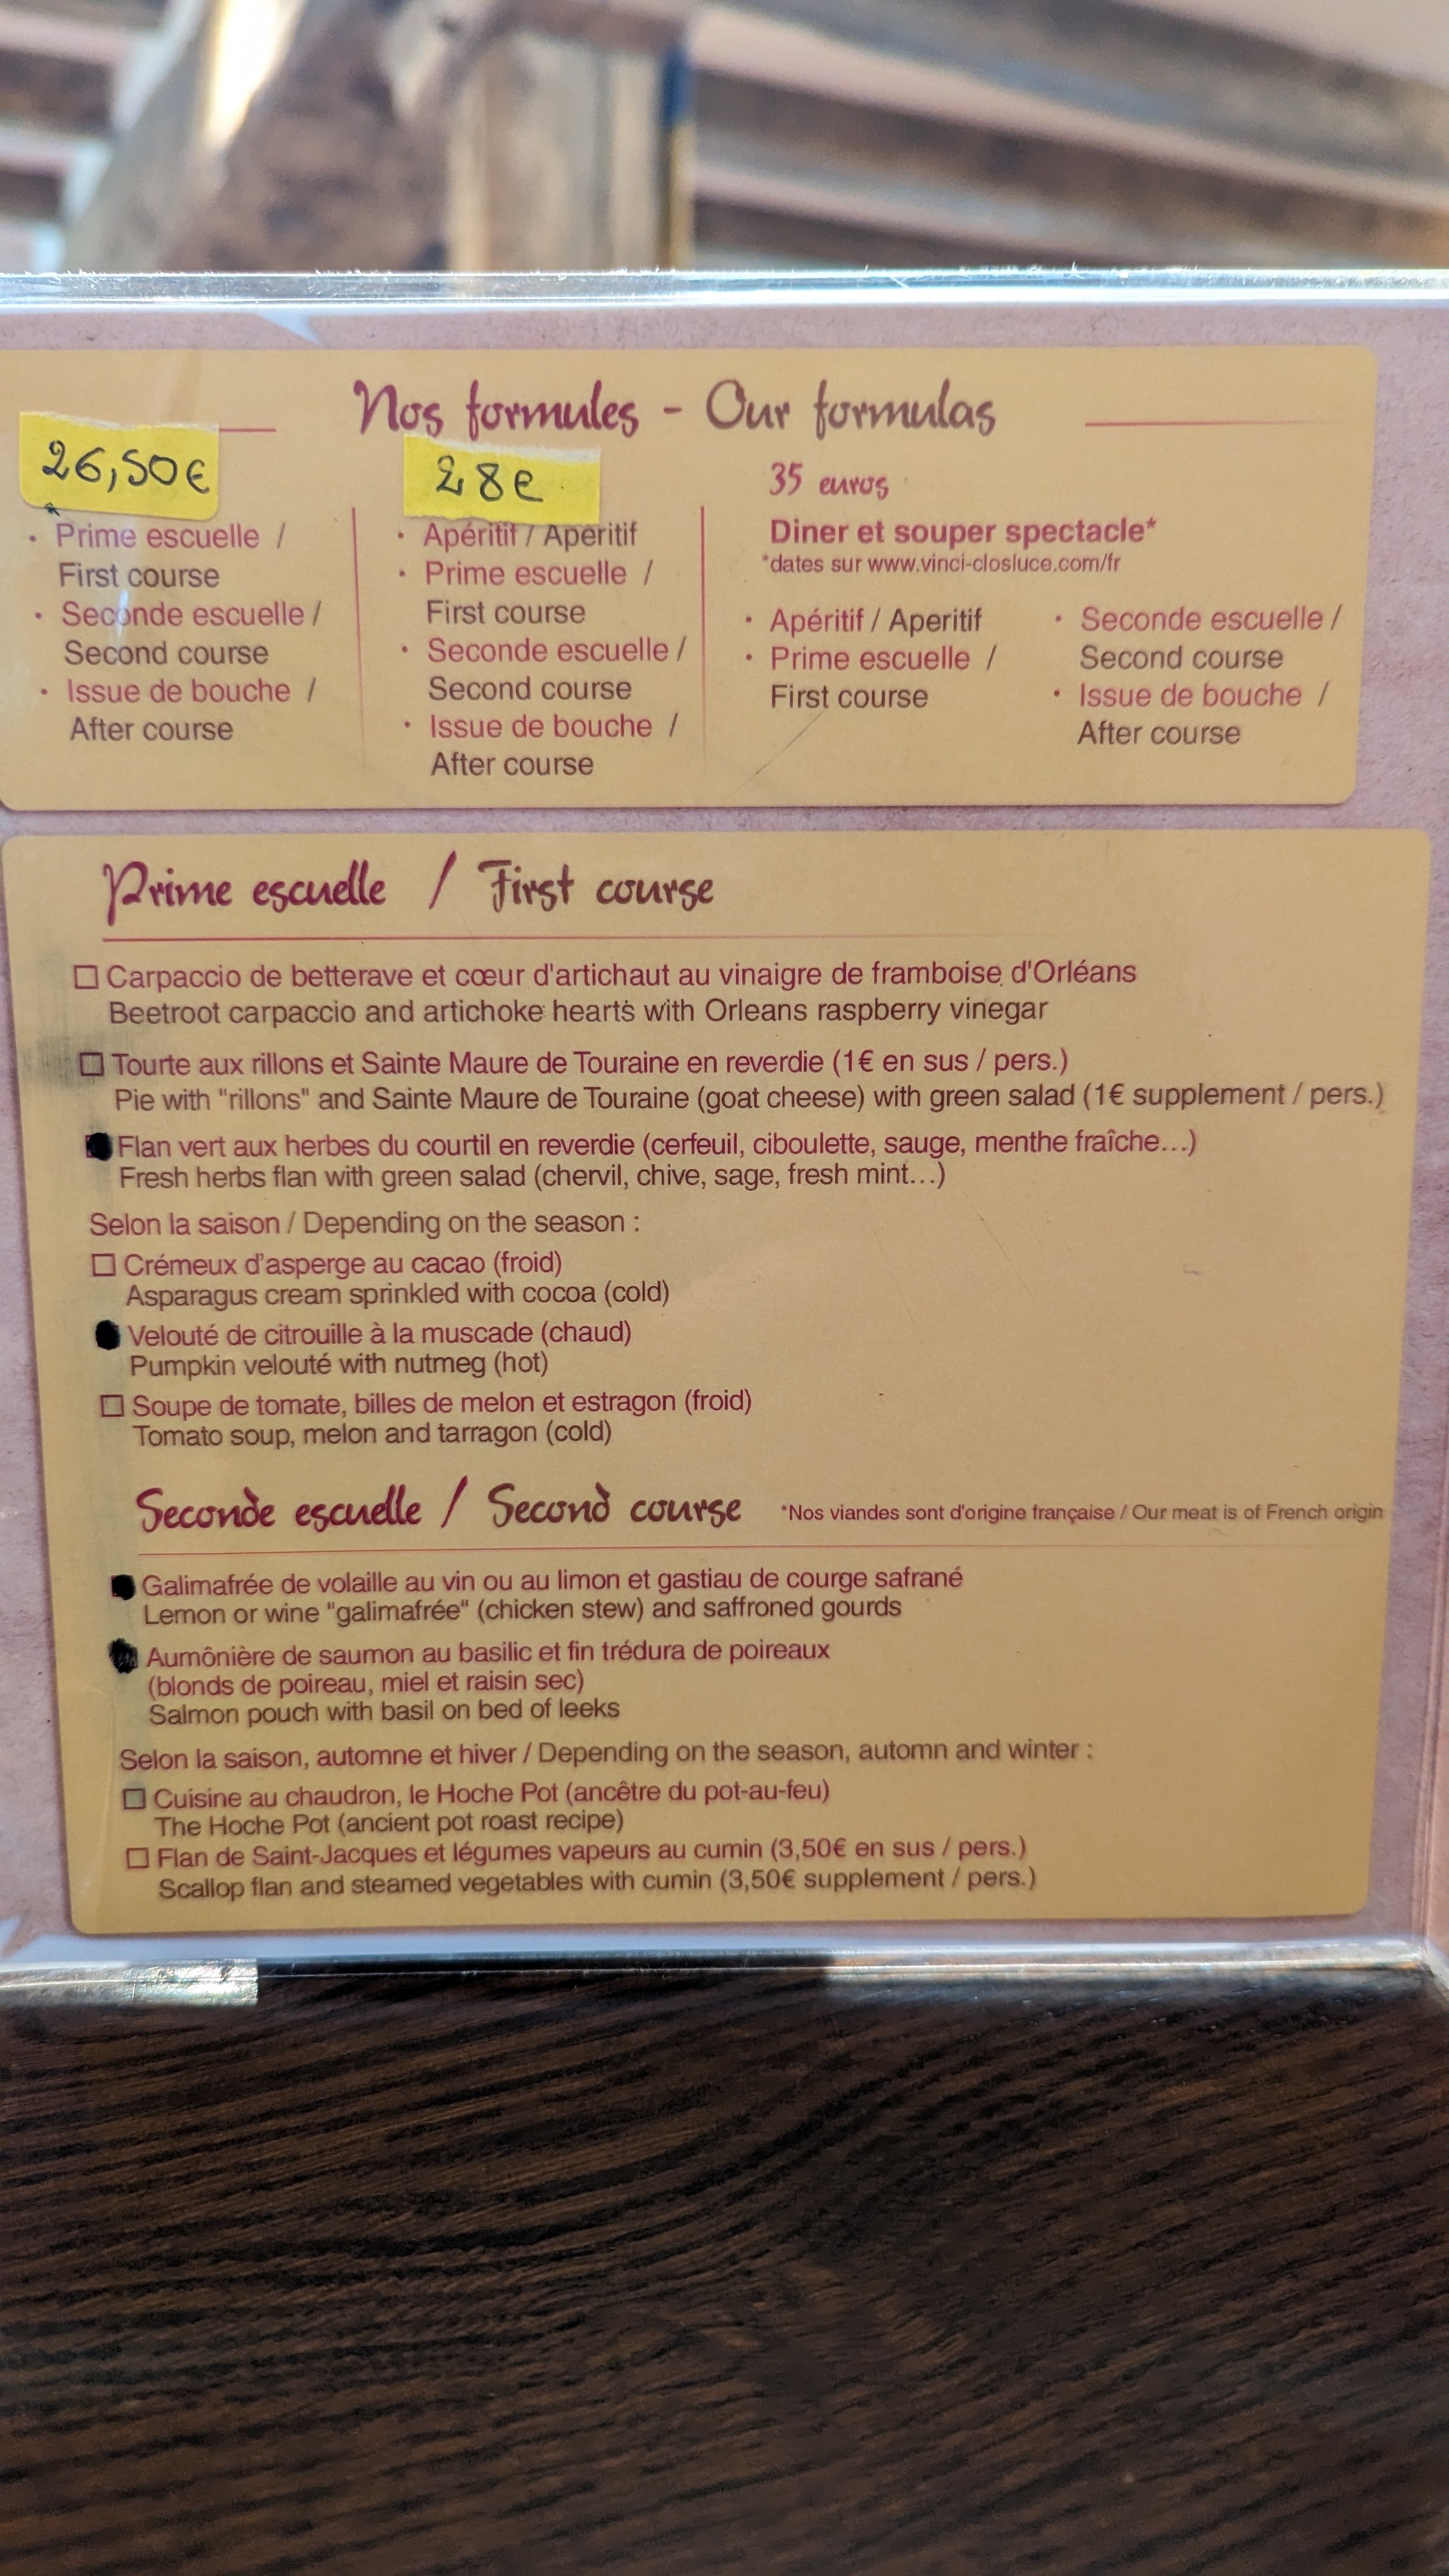 Nos formules - Our formulas
26,50€
· Prime escuelle /
First course
· Seconde escuelle /
Second course
· Issue de bouche /
After course
28€
· Apéritif / Aperitif
· Prime escuelle /
First course
· Seconde escuelle /
Second course
· Issue de bouche /
After course
35 euros
Diner et souper spectacle*
*dates sur www.vinci-closluce.com/fr
· Apéritif / Aperitif
· Prime escuelle /
First course
· Seconde escuelle /
Second course
· Issue de bouche /
After course
Prime escuelle / First course
Carpaccio de betterave et cœur d'artichaut au vinaigre de framboise d'Orléans
Beetroot carpaccio and artichoke hearts with Orleans raspberry vinegar
Tourte aux rillons et Sainte Maure de Touraine en reverdie (1€ en sus / pers.)
Pie with "rillons" and Sainte Maure de Touraine (goat cheese) with green salad (1€ supplement / pers.)
Flan vert aux herbes du courtil en reverdie (cerfeuil, ciboulette, sauge, menthe fraîche...)
Fresh herbs flan with green salad (chervil, chive, sage, fresh mint...)
Selon la saison / Depending on the season :
Crémeux d'asperge au cacao (froid)
Asparagus cream sprinkled with cocoa (cold)
Velouté de citrouille à la muscade (chaud)
Pumpkin velouté with nutmeg (hot)
Soupe de tomate, billes de melon et estragon (froid)
Tomato soup, melon and tarragon (cold)
Seconde escuelle / Second course *Nos viandes sont d'origine française / Our meat is of French origin
Galimafrée de volaille au vin ou au limon et gastiau de courge safrané
Lemon or wine "galimafrée" (chicken stew) and saffroned gourds
Aumônière de saumon au basilic et fin trédura de poireaux
(blonds de poireau, miel et raisin sec)
Salmon pouch with basil on bed of leeks
Selon la saison, automne et hiver / Depending on the season, automn and winter :
Cuisine au chaudron, le Hoche Pot (ancêtre du pot-au-feu)
The Hoche Pot (ancient pot roast recipe)
Flan de Saint-Jacques et légumes vapeurs au cumin (3,50€ en sus / pers.)
Scallop flan and steamed vegetables with cumin (3,50€ supplement / pers.)